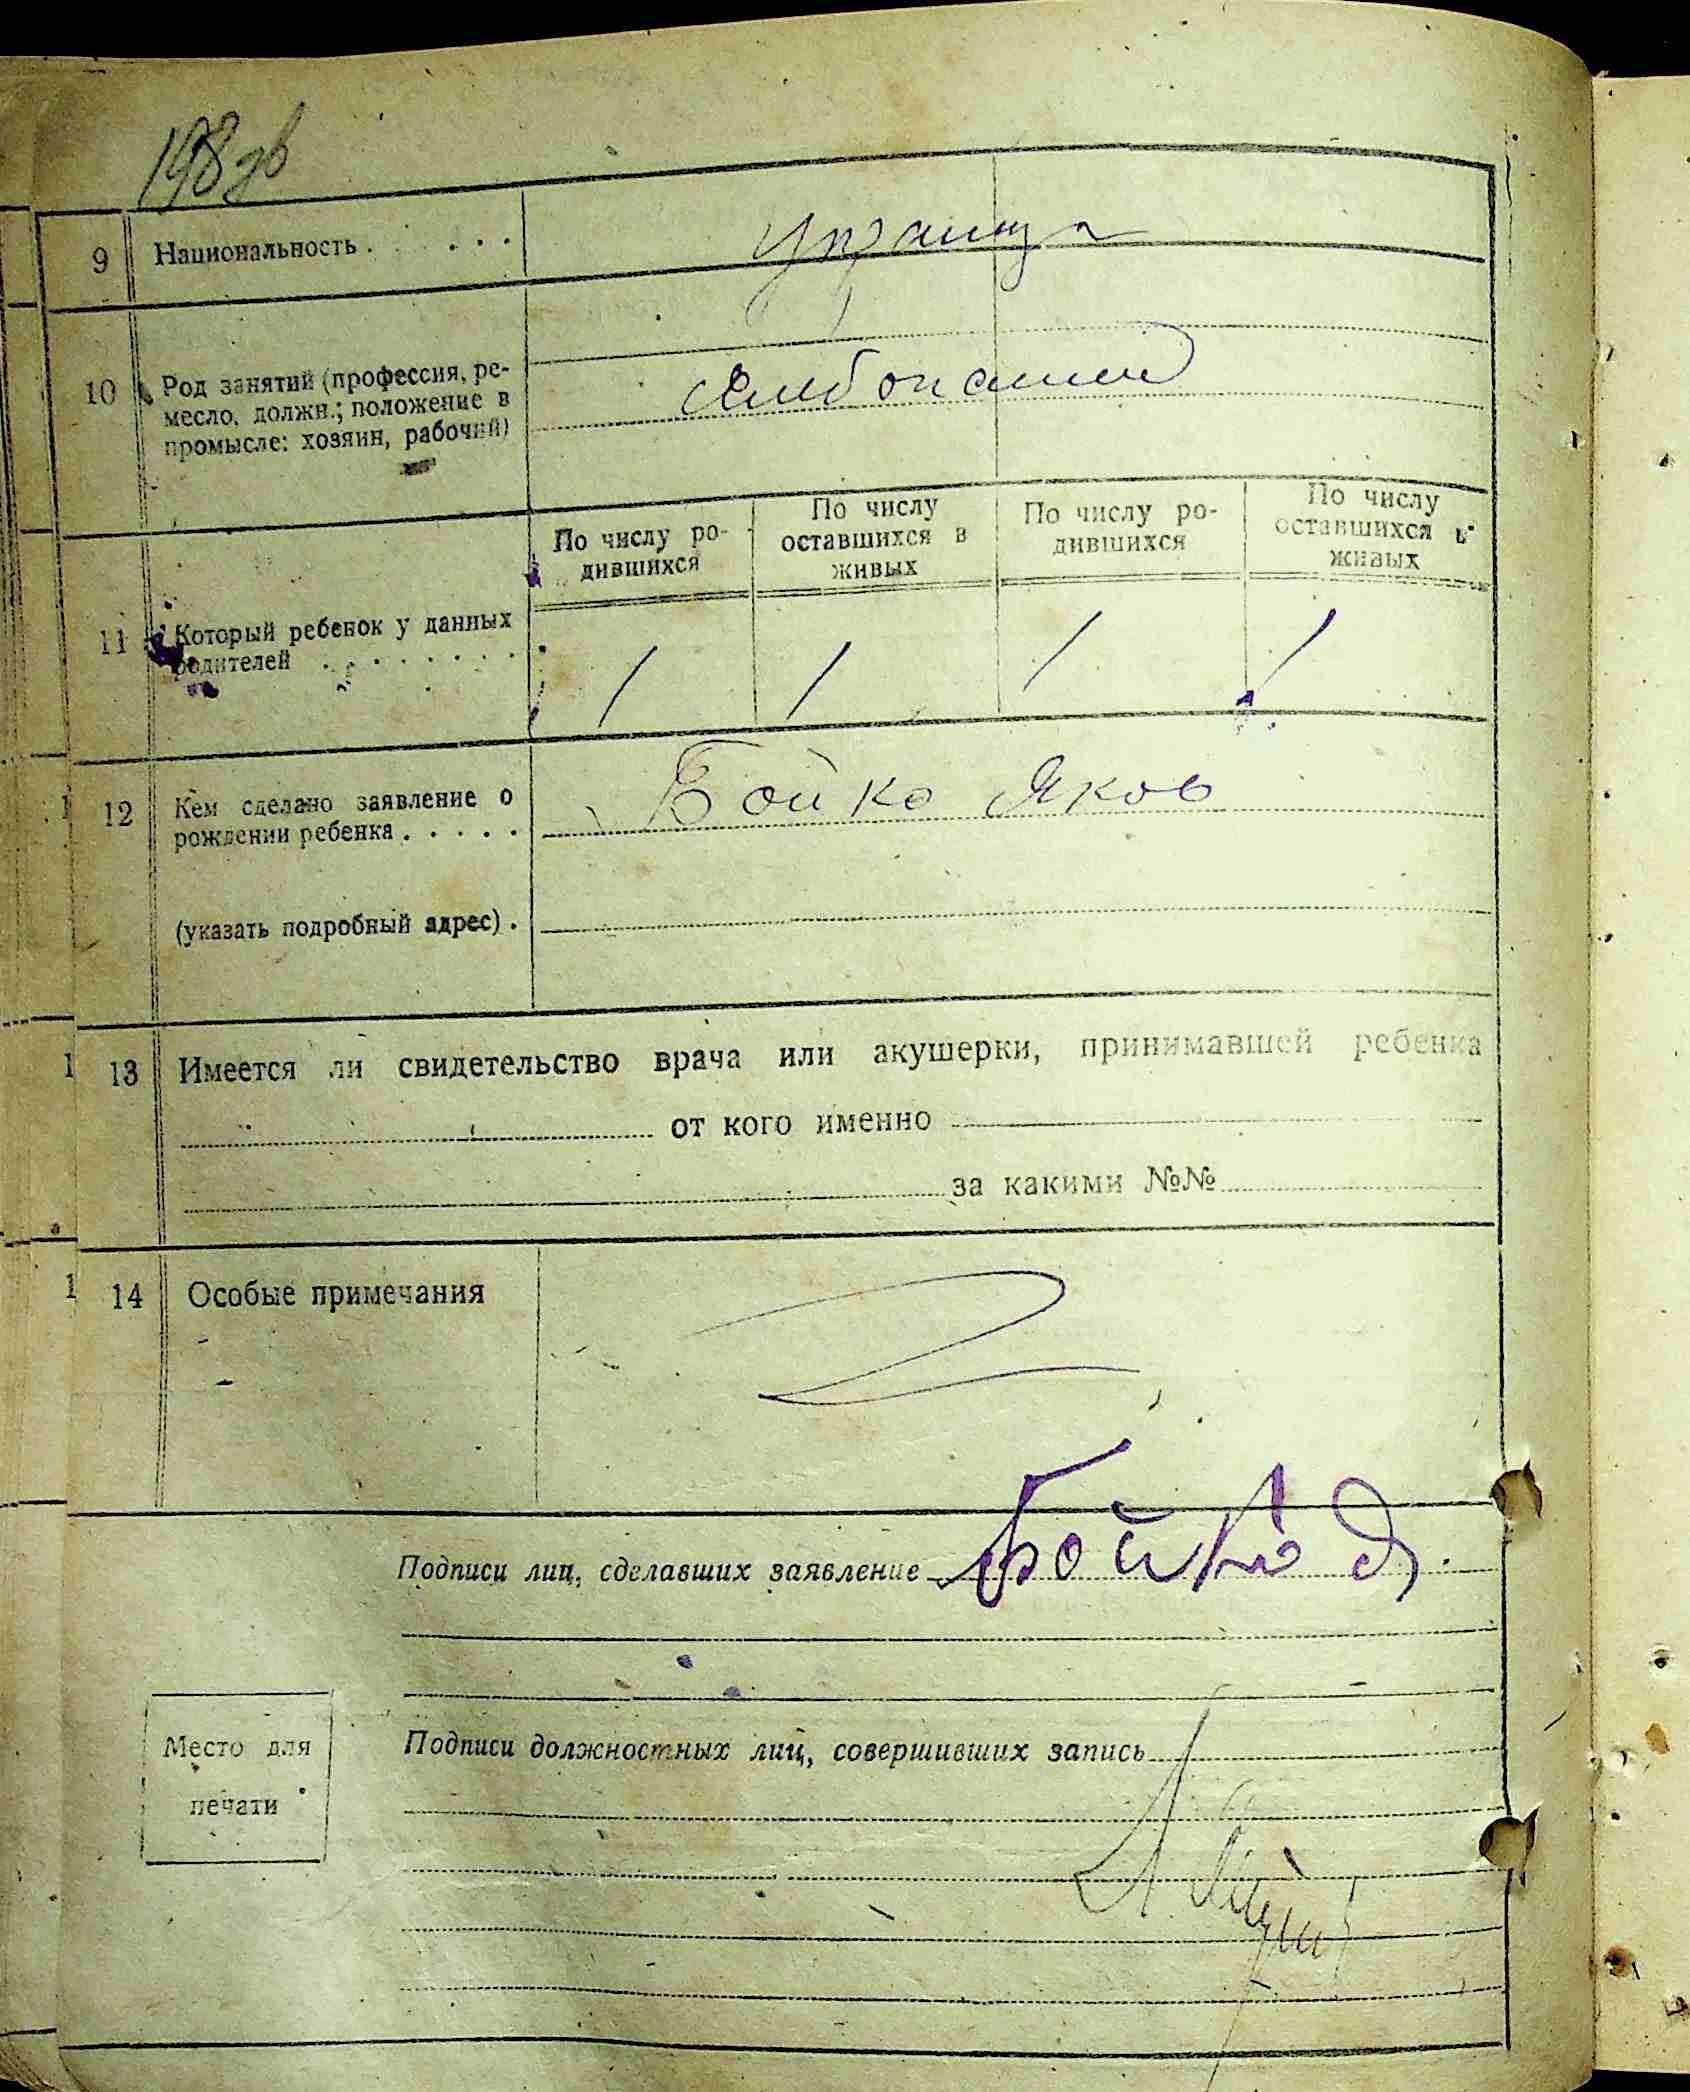 198 зв
9 Национальность . . . . . украинцы
10 Род занятий (профессия, ре-
месло, должн.; положение в
промысле: хозяин, рабочий)
Хлебопашец
По числу ро-
дившихся
По числу
оставшихся в
живых
По числу ро-
дившихся
По числу
оставшихся в
живых
11 Который ребенок у данных
родителей . . . . . . . .
1 1 1 1
12 Кем сделано заявление о
рождении ребенка . . . . .
Бойко Яков
(указать подробный адрес) .
13 Имеется ли свидетельство врача или акушерки, принимавшей ребенка
от кого именно
за какими №№
14 Особые примечания
Подписи лиц, сделавших заявление Бойко Я.
Подписи должностных лиц, совершивших запись
Место для
печати